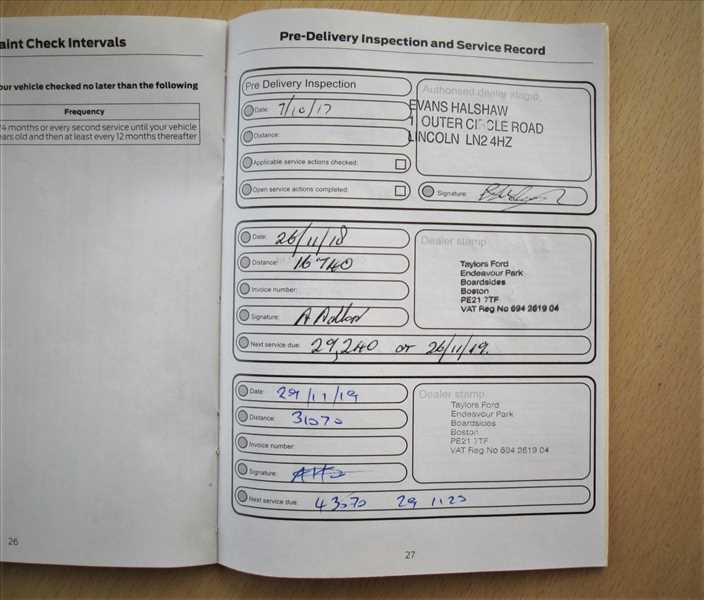 aint Check Intervals
our vehicle checked no later than the following
Frequency
4 months or every second service until your vehicle
ars old and then at least every 12 months thereafter
26
Pre-Delivery Inspection and Service Record
Pre Delivery Inspection
Date: 7/10/17
Distance:
Applicable service actions checked:
Open service actions completed:
Authorised dealer stamp
EVANS HALSHAW
1 OUTER CIRCLE ROAD
LINCOLN LN2 4HZ
Signature:
Date: 26/11/18
Distance: 16740
Invoice number:
Signature:
Next service due: 29,240 or 26/11/19.
Dealer stamp
Taylors Ford
Endeavour Park
Boardsides
Boston
PE21 7TF
VAT Reg No 694 2619 04
Date: 29/11/19
Distance: 31070
Invoice number:
Signature:
Next service due: 43070 29 11 20
Dealer stamp
Taylors Ford
Endeavour Park
Boardsides
Boston
PE21 7TF
VAT Reg No 694 2619 04
27